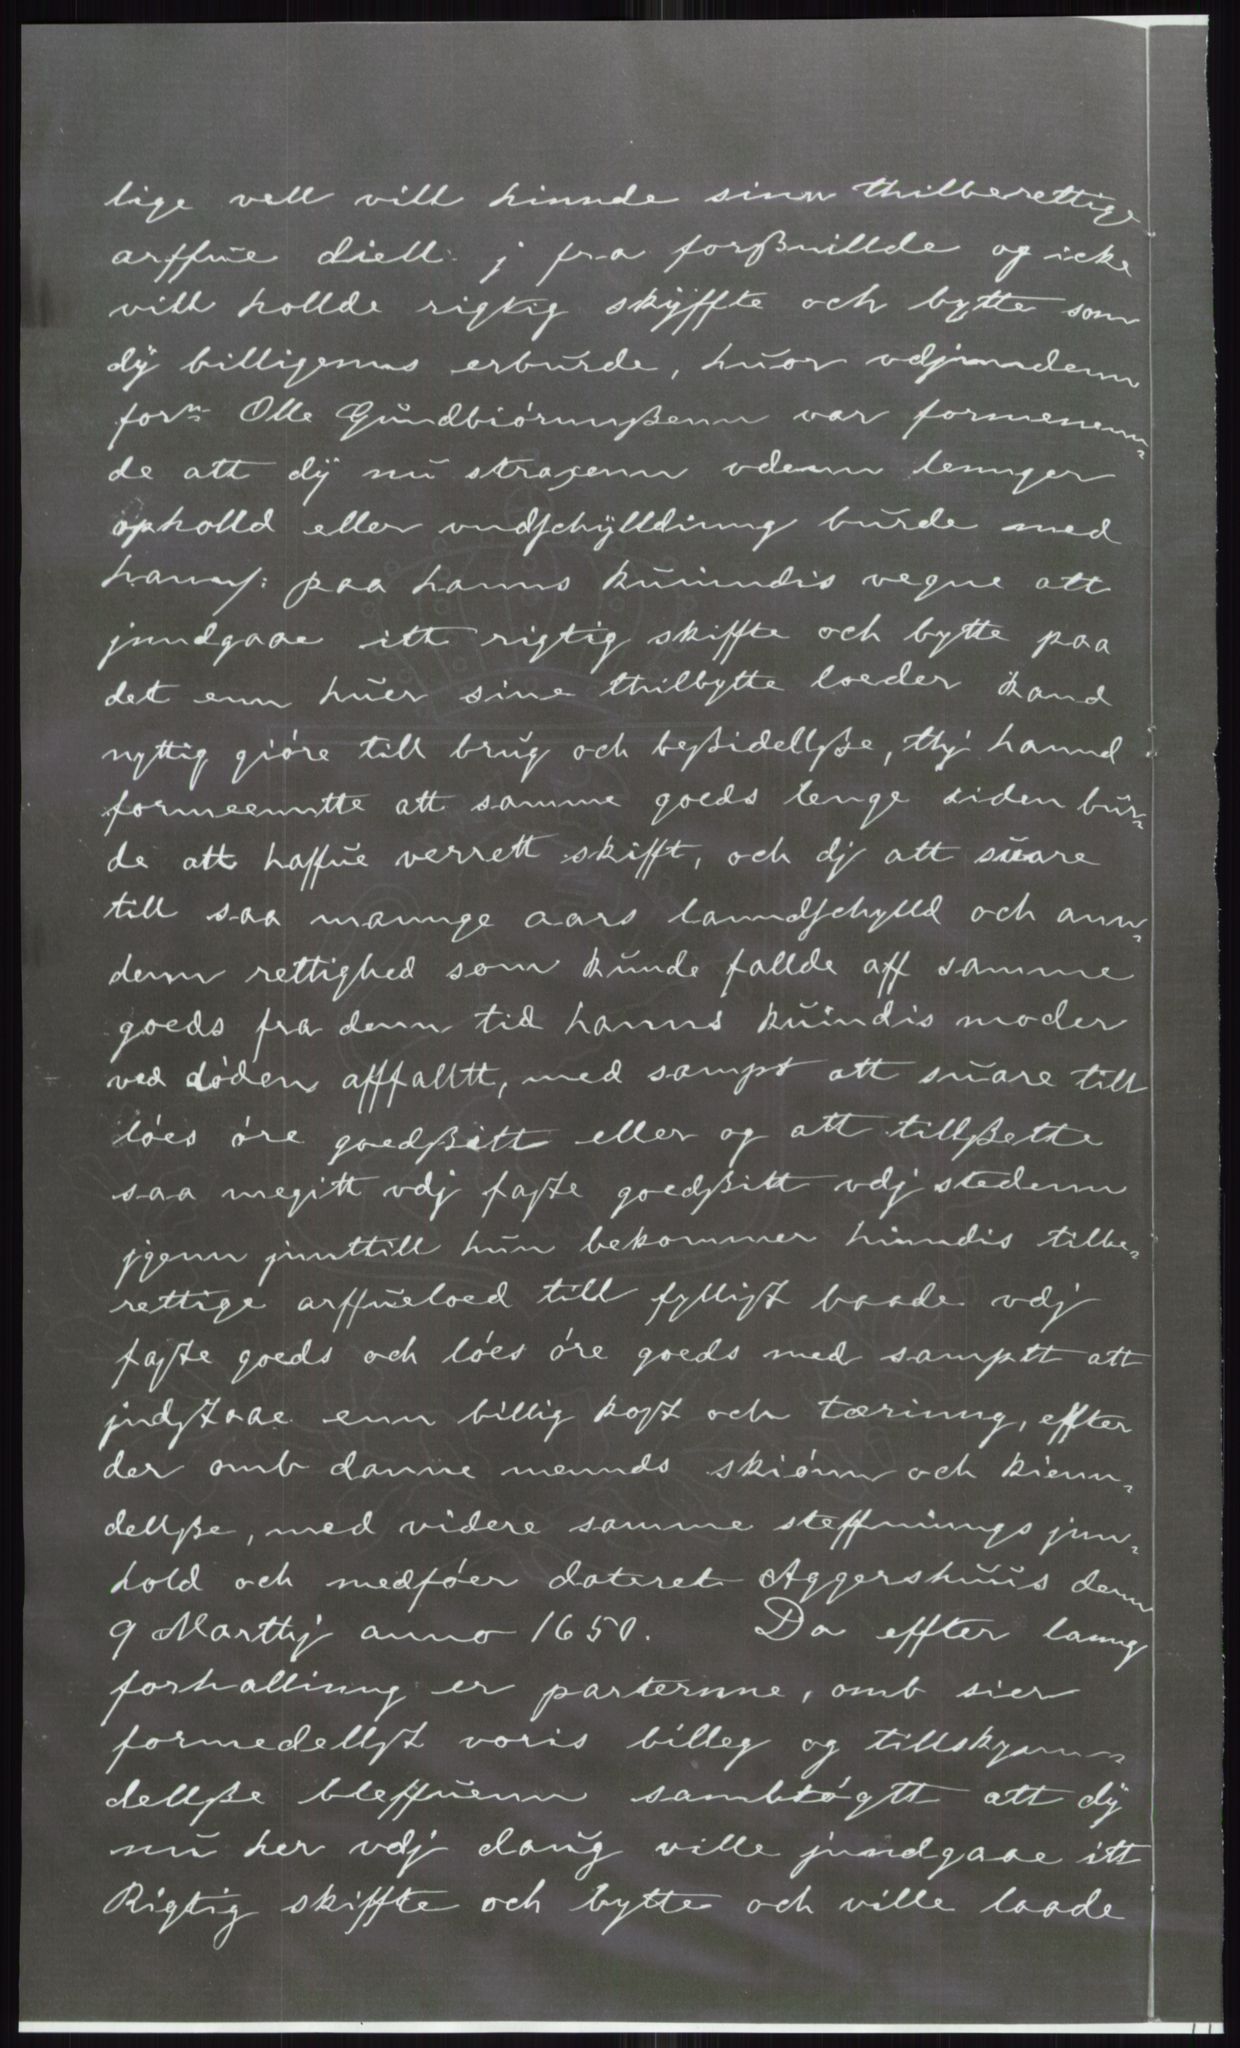 lige vell vill hinnde sinn thilberettige
arffue diell j fra forßuillde og icke
vill hollde rigtig skÿffte och bytte som
dÿ billigenns erburde, huor vdjnndenn
forn Olle Gundbiórnnßenn var formenenn„
de att dÿ nu straxenn vdenn lennger
ophold eller vndschÿlldinng burde med
hannß: paa hanns kuinndis vegne att
jnndgaae itt rigtig skiffte och bytte paa
det enn huer sine thilbytte loeder kand
nyttig gióre till brug och beßidellße, thj hannd
formeenntte att samme goeds lenge siden bur„
de att haffue verrett skifft, och dj att suare
till saa mannge aars lanndschylld och ann„
denn rettighed som kunde fallde aff samme
goeds fra denn tid hanns kuindis moder
ved dóden afffalltt, med sampt att suare till
lóes óre goedßitt eller og att tillßette
saa megitt vdj faste goedßitt vdj stedenn
jgenn jnnttill hun bekommer hinndis tilbe„
rettige arffueloed till fylligt baade vdj
faste goeds och lóes óre goeds med samptt att
jndstaae enn billig kost och tærinng, effter
der omb danne mennds skiónn och kienn„
dellße, med videre samme steffninngs jnn„
hold och medfóer dateret Aggershuus denn
9 Marthj anno 1650. Da effter lanng
forhallinng er parternne, omb sier
formedellst voris billeg og tillskynn„
dellße bleffuenn sambtógtt att dÿ
nu her vdj daug ville jnndgaae itt
Rigtig skiffte och bytte och ville laade